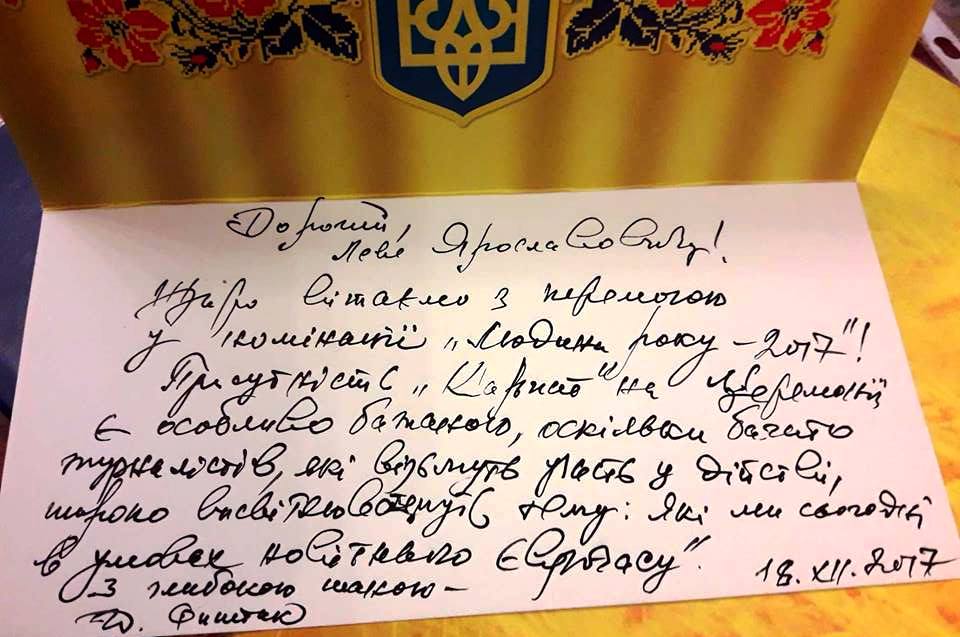 Дорогий,
Леве Ярославовичу!
Щиро вітаємо з перемогою
у номінації „Людина року – 2017"!
Присутність „ " на церемонії
є особливо бажаною, оскільки багато
журналістів, які візьмуть участь у дійстві,
широко висвітлюватимуть тему: Які ми сьогодні
в умовах новітнього Єврочасу".
З глибокою шаною –
18.XII.2017